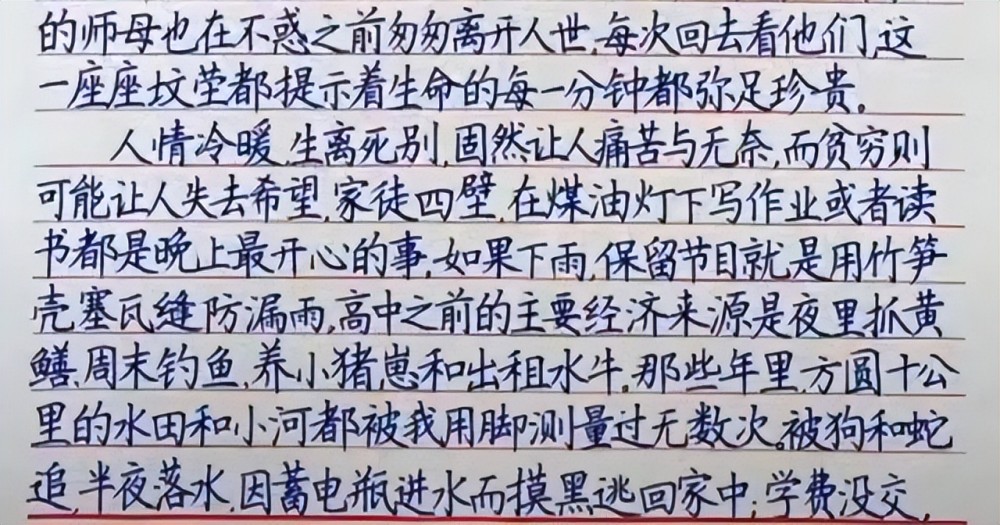 的师母也在不惑之前匆匆离开人世,每次回去看他们,这
一座座坟茔都提示着生命的每一分钟都弥足珍贵。
人情冷暖,生离死别,固然让人痛苦与无奈,而贫穷则
可能让人失去希望,家徒四壁,在煤油灯下写作业或者读
书都是晚上最开心的事,如果下雨,保留节目就是用竹笋
壳塞瓦缝防漏雨,高中之前的主要经济来源是夜里抓黄
鳝,周末钓鱼,养小猪崽和出租水牛。那些年里,方圆十公
里的水田和小河都被我用脚测量过无数次。被狗和蛇
追,半夜落水,因蓄电瓶进水而摸黑逃回家中;学费没交,